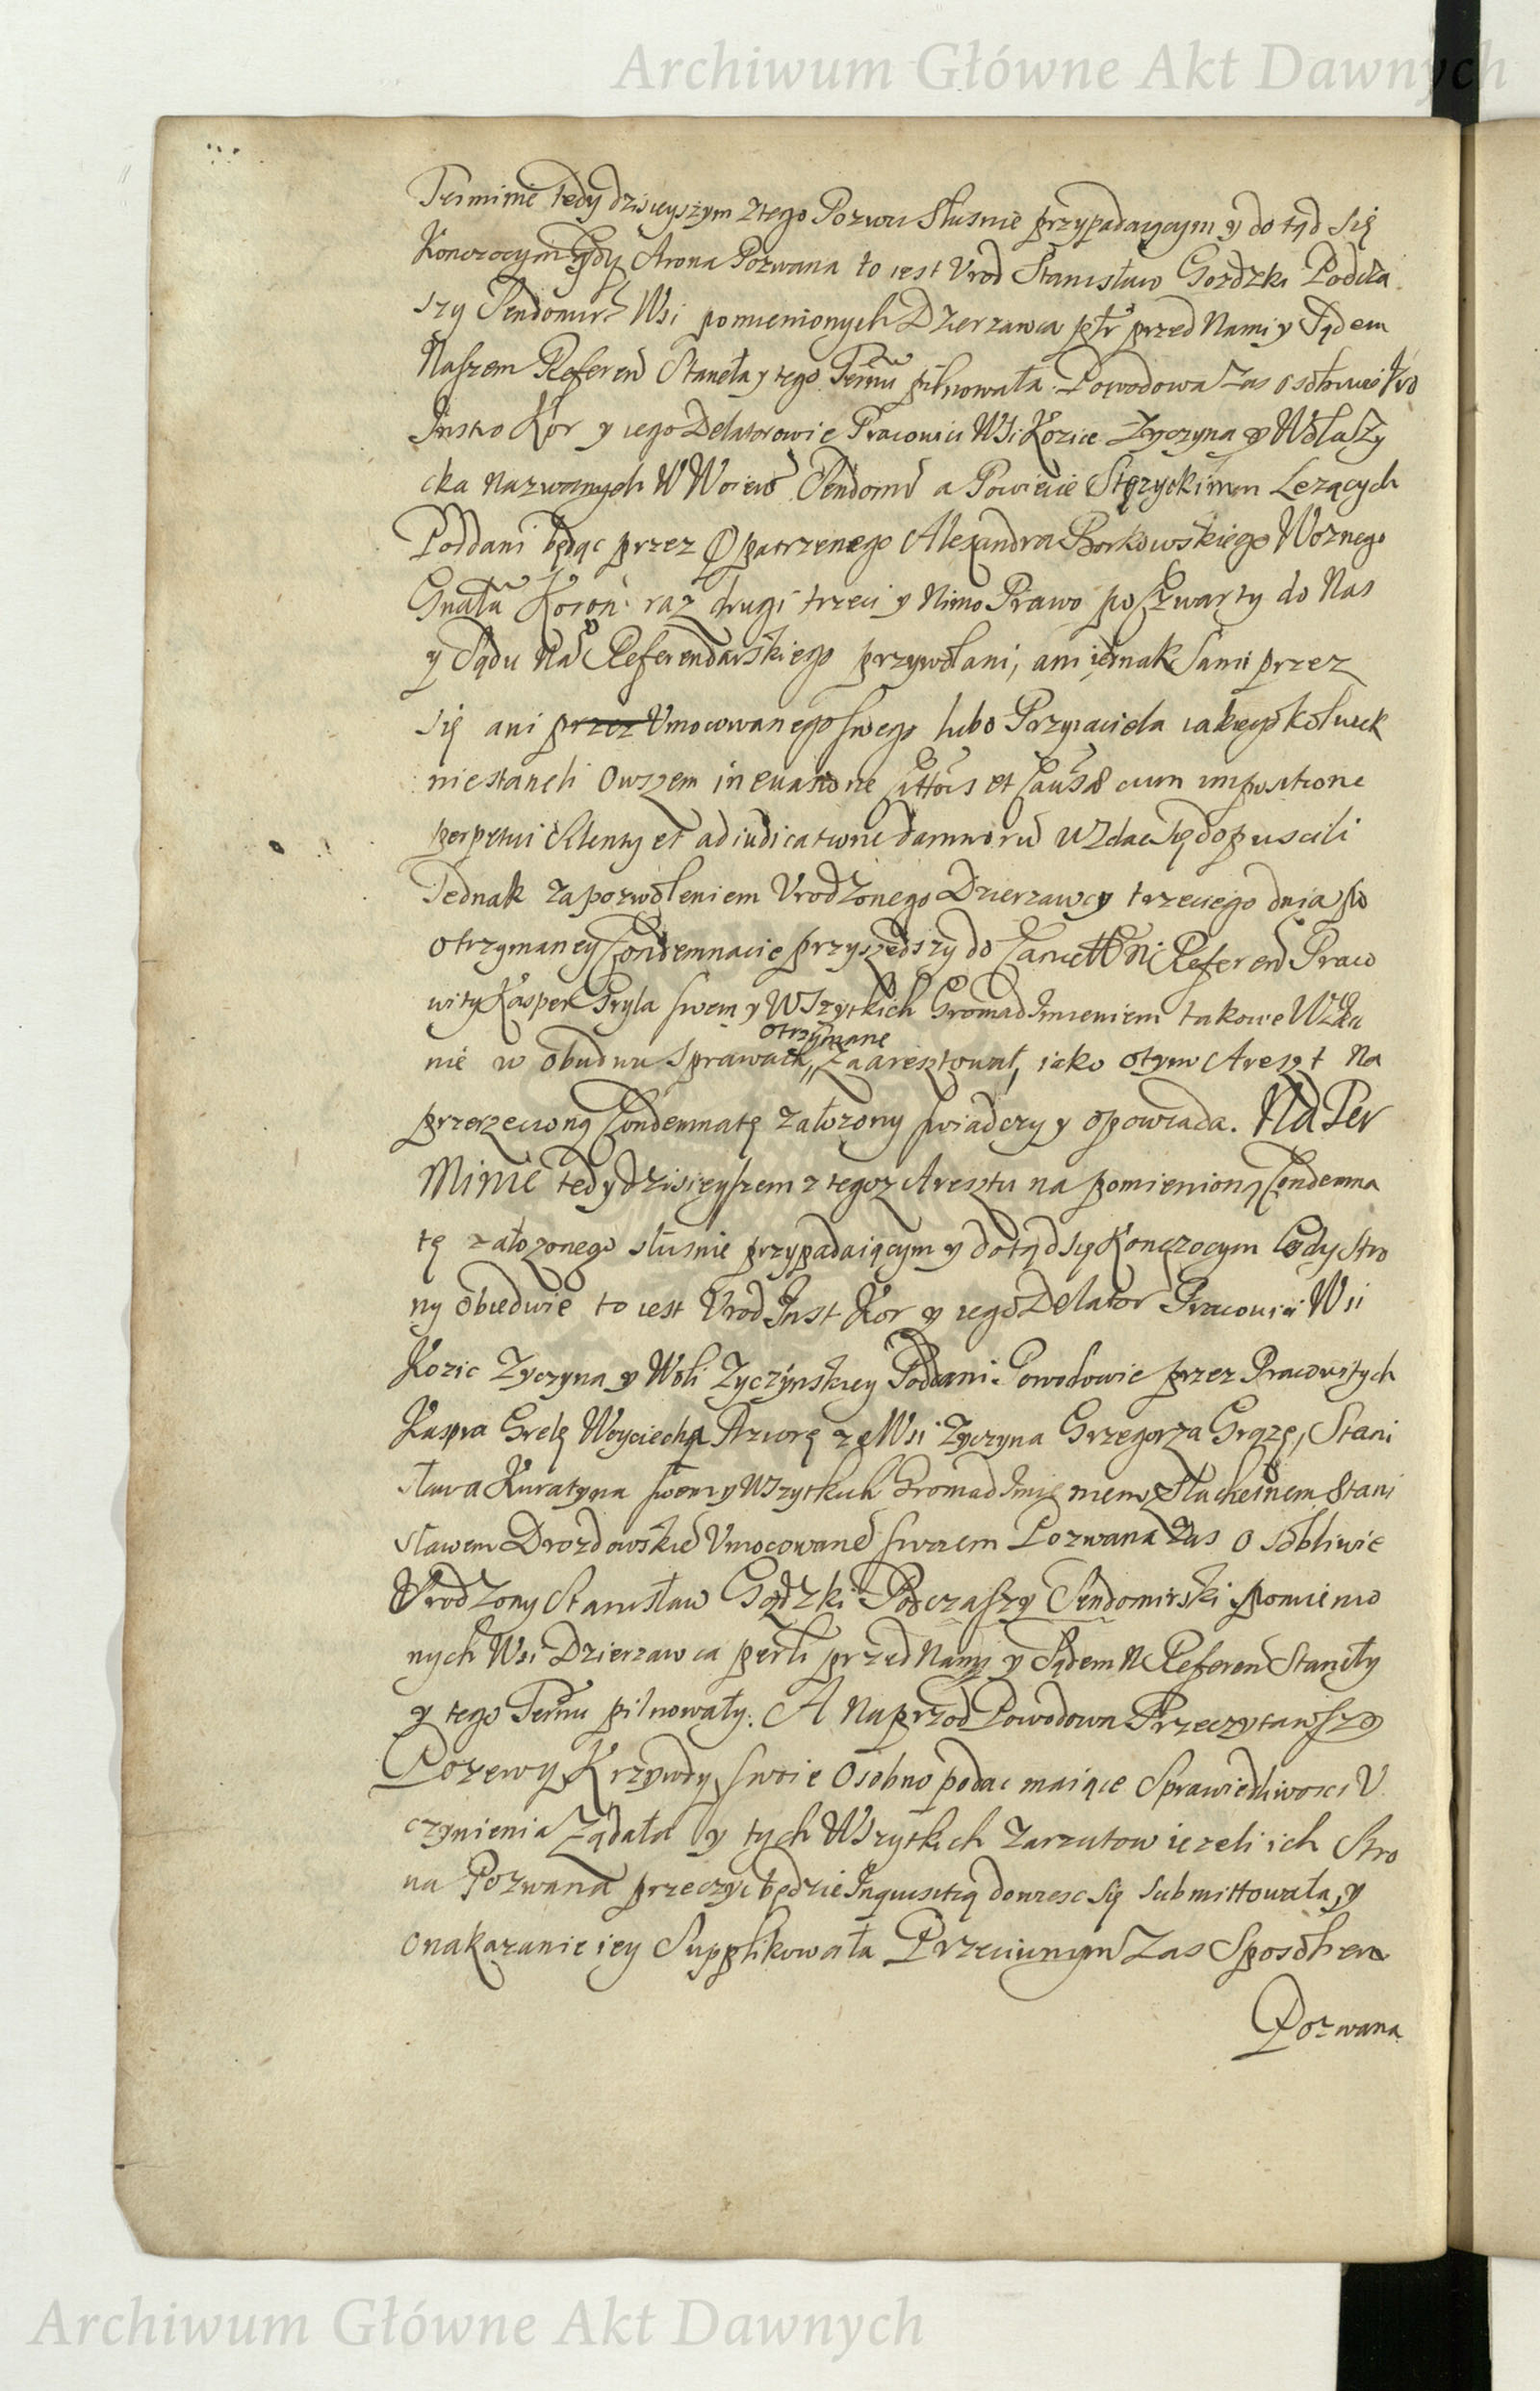 Archiwum Główne Akt Dawnych
Terminie tedy dzisieyszym z tego Pozwu słusnie przypadaiącym y do tąd się
Konczocym gdy Strona Pozwana to iest Urod Stanisław Gozdzki Podcza
szy Sendomir Wsi pomienionych Dzierzawca przed Nami y Sądem
Naszem Referen Staneła y tego Termu pilnowała. Powodowa zas osobliwie Uro
Instro Kor y iego Delatorowie Pracowici Wsi Kozice Zyczyna y Wola Zy
cka Nazwanych W Woiewo Sendomi a Powiecie Stęzyckimm Lezących
Poddani będąc przez Opatrzenego Alexandra Borkowskiego Woznego
Gnału Koron raz drugi trzeci y Nimo Prawo po Czwarty do Nas
y Sądu Na Referendarskiego przywołani, ani iednak Sami przez
się ani przez Umocowanego swego lubo Przyiaciela iakiegokolwiek
niestaneli Owszem in euasione et Causae cum impositione
perpetui Silenty et adiudicatione damnoru wzdac się dopuscili
Jednak za pozwoleniem Urodzonego Dzierzawcy trzeciego dnia po
otrzymaney Condemnacie przyszedszy do Cancellari Referen Praco
wity Kasper Gryla swem y Wszytkich Gromad Imieniem takowe Wzda
nie w obudwu sprawach otrzymane zaaresztował, iako o tym Areszt na
przerzeczoną Condemnatę załozony swiadczy y opowiada. Na Ter
minie tedy dzisieyszem z tegoz Aresztu na pomienioną Condemna
tę załozonego słusnie przypadaiącym y dotąd się Konczocym Gdy Stro
ny obiedwie to iest Urod Inst Kor y iego Delator Pracowici Wsi
Kozic Zyczyna y Woli Zyczynskiey Poddani Powodowie przez Pracowitych
Kaspra Grelę Woyciecha ze Wsi Zyczyna Grzegorza Grązę, Stani
sława Kuratyna swem y Wszytkich Gromad Imieniem, Slachetnem Stani
sławem Drozdowskie Umocowane swoiem Pozwana zas osobliwie
Urodzony Stanisław Gozdzki Podczaszy Sendomirski pomienio
nych Wsi Dzierzawca perli przed Namy y Sądem N Referen Staneły
y tego Termu pilnowały. A Naprzod Powodowa Przeczytawszy
Pozewy Krzywdy swoie Osobno podac maiące Sprawiedliwosci U
czynienia Ządała y tych Wszytkich Zarzutow iezeli ich Stro
na Pozwana przeczyc będzie Inquisitią dowiesc się submittowała, y
o nakazanie iey Supplikowała Przeciwnym Zas Sposobem
Pozwana
Archiwum Główne Akt Dawnych